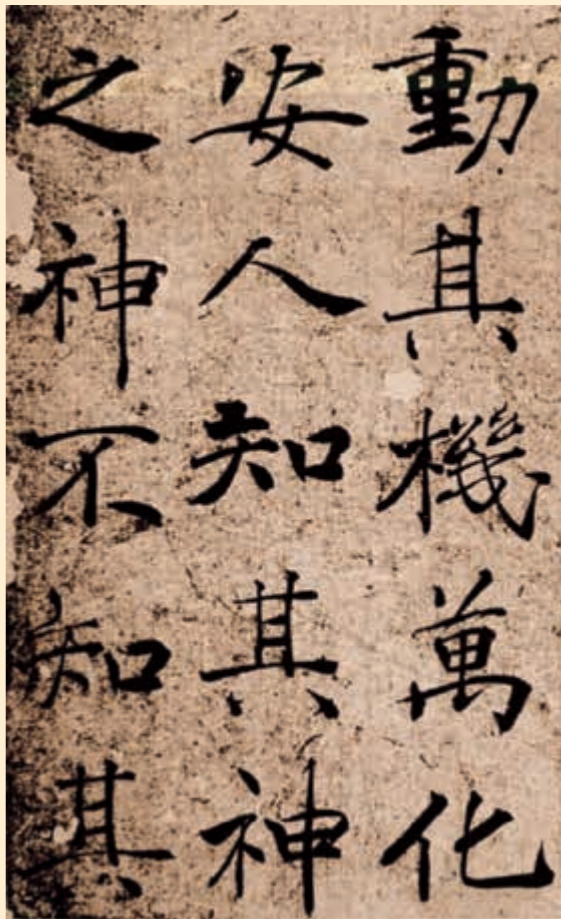 動其機萬化
安人知其神
之神不知其